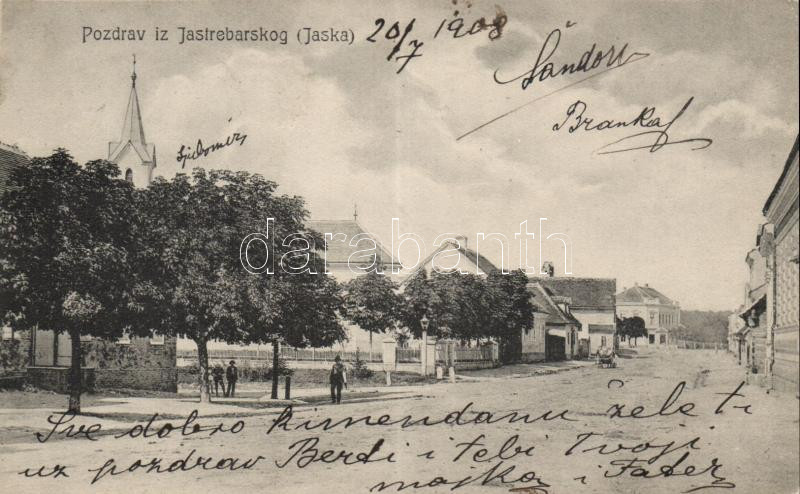 Pozdrav iz Jastrebarskog (Jaska) 20/7 1908
Šandor
Branka
Ljudomir
darabanth
Sve dobro k imendanu žele ti
uz pozdrav Berti i tebi Tvoji
majka i Fater